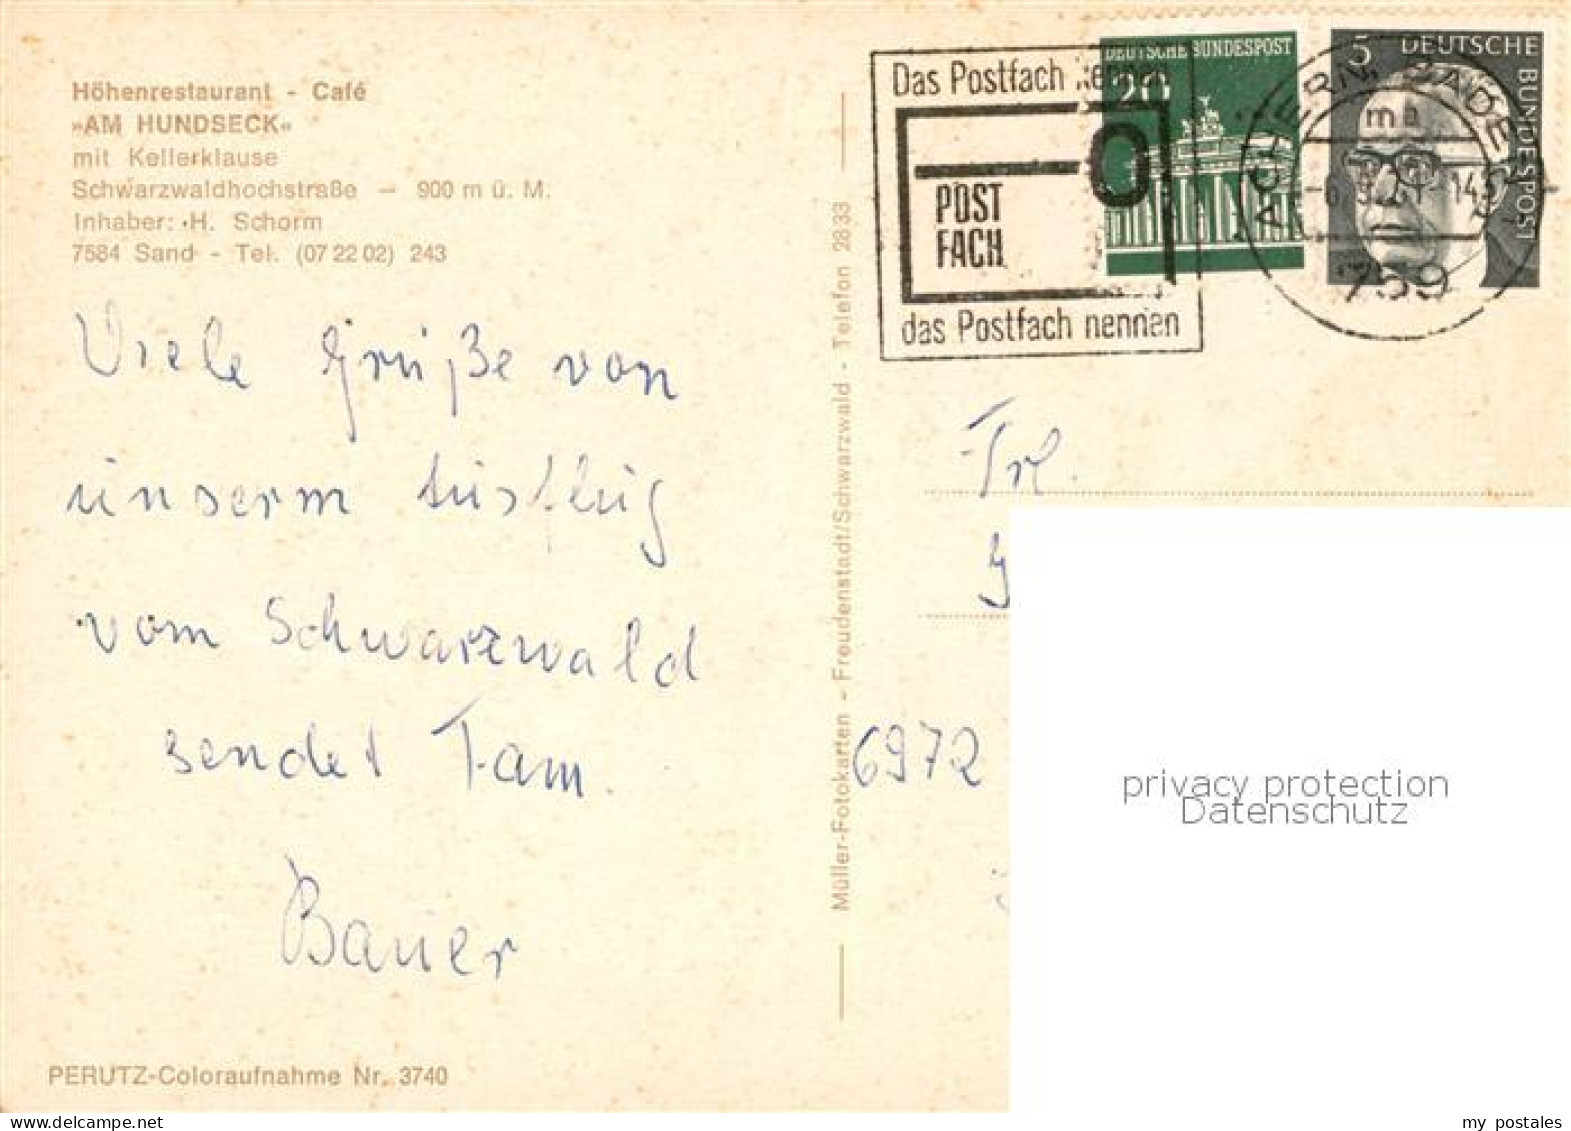 Höhenrestaurant - Café
»AM HUNDSECK«
mit Kellerklause
Schwarzwaldhochstraße — 900 m ü. M.
Inhaber: H. Schorm
7584 Sand - Tel. (07 22 02) 243
Viele Grüße von
unserm Ausflug
vom Schwarzwald
sendet Fam.
Bauer
PERUTZ-Coloraufnahme Nr. 3740
Müller-Fotokarten - Freudenstadt/Schwarzwald - Telefon 2833
Das Postfach kennen
POST
FACH
das Postfach nennen
DEUTSCHE BUNDESPOST
20
5 DEUTSCHE
BUNDESPOST
ACHERN, BADEN
759
Frl.
6972
privacy protection
Datenschutz
my postales